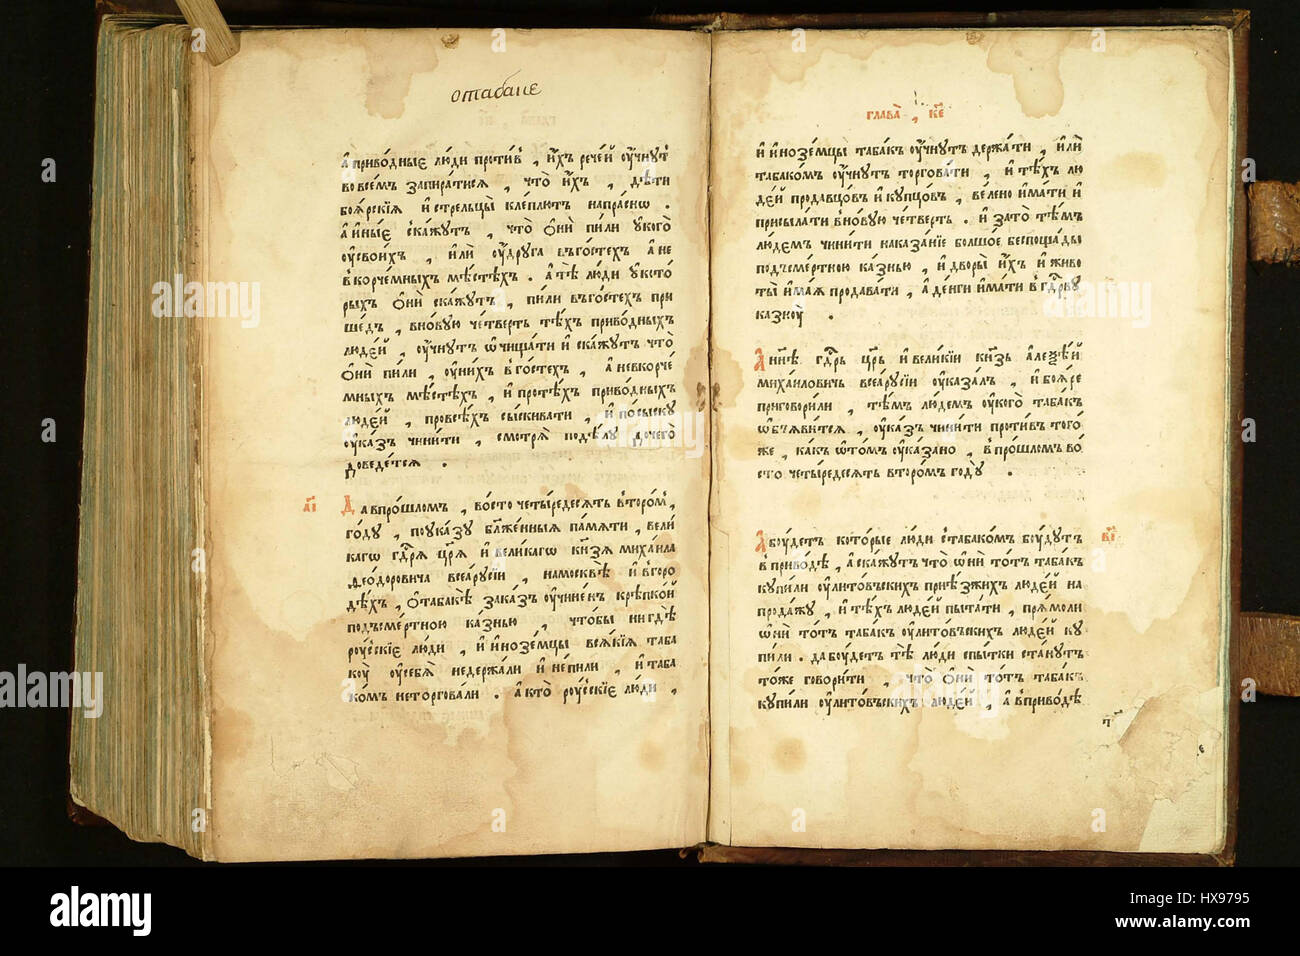 отабаце
а҆ приво́дныѐ лю́ди проти́в , и҆́хъ рече́й ᲂу҆чнꙋ́т
во всемъ запира́тисѧ , что̀ и҆́хъ , дѣ́ти
боѧ́рскїѧ и҆ стрельцы̀ кле́плютъ напра́снѡ .
а҆ и҆ны́е ска́жꙋтъ , что̀ ѻ҆нѝ пи́ли ᲂу҆ кого̀
ᲂу҆ свои́хъ , и҆лѝ ᲂу҆ дрꙋ́га въ гостѣ́хъ а҆ не
в корче́мныхъ мѣ́стѣхъ . а҆ тѣ̀ лю́ди ᲂу҆ кото́
рыхъ ѻ҆нѝ ска́жꙋтъ , пи́ли въ гостѣ́хъ при
ше́дъ , в но́вꙋю че́тверть тѣ́хъ приво́дныхъ
люде́й , ᲂу҆чнꙋ́тъ ѡ҆чища́ти и҆ ска́жꙋтъ что̀
ѻ҆нѝ пи́ли , ᲂу҆ ни́хъ в го́стехъ , а҆ не в корче́
мныхъ мѣ́стѣхъ , и҆ про тѣ́хъ приво́дныхъ
люде́й , про всѣ́хъ сы́скивати , и҆ по сы́скꙋ
ᲂу҆ка́зъ чини́ти , смотрѧ̀ по дѣ́лꙋ до чего̀
доведе́тсѧ .
а҃і
Да в про́шломъ , во сто четы́редесѧть второ́мъ ,
годꙋ̀ , по ᲂу҆ка́зꙋ бл҃же́нныѧ па́мѧти , вели́
кагѡ гдⷭ҇рѧ цр҃ѧ̀ и҆ вели́кагѡ кн҃зѧ михаи́ла
ѳео́доровича всеа̀ рꙋсі́и , на москвѣ̀ и҆ в горо
дѣ́хъ , ѻ҆ табакѣ̀ зака́зъ ᲂу҆чине́нъ крѣ́пкой
под сме́ртною ка́знью , что́бы нигдѣ̀
рꙋ́сскїе лю́ди , и҆ и҆нозе́мцы всѧ́кїѧ таба
кꙋ̀ ᲂу҆ себѧ̀ не держа́ли и҆ не пи́ли , и҆ таба
ко́мъ не торгова́ли . а҆ кто̀ рꙋ́сскїе лю́ди ,
глава̀ , к҃е
и҆ и҆нозе́мцы таба́к ᲂу҆чнꙋ́тъ держа́ти , и҆лѝ
табако́мъ ᲂу҆чнꙋ́тъ торгова́ти , и҆ тѣ́хъ лю
де́й продавцо́въ и҆ купцо́въ , ве́лено и҆ма́ти и҆
присыла́ти в но́вꙋю че́тверть . и҆ за то̀ тѣ́мъ
лю́демъ чини́ти наказа́нїе большо́е без поща́ды
под сме́ртною ка́знью , и҆ дворы̀ и҆́хъ и҆ живо
ты̀ и҆ма́ѧ продава́ти , а҆ де́нги и҆ма́ти в гдⷭ҇рвꙋ
казнꙋ̀ .
А ны́нѣ гдⷭ҇рь цр҃ь и҆ вели́кїи кн҃зь але́ѯѣй
миха́иловичь всеа̀ рꙋсі́и ᲂу҆каза́лъ , и҆ боѧ́ре
приговори́ли , тѣ́мъ лю́демъ ᲂу҆ кого̀ таба́къ
ѡ҆б̾ѧ́витсѧ , ᲂу҆ка́зъ чини́ти проти́въ того́
же , ка́къ ѡ҆ то́мъ ᲂу҆ка́зано , в про́шломъ во́
сто четы́редесѧть второ́мъ годꙋ̀ .
в҃і
А бꙋ́детъ кото́рые лю́ди с табако́мъ бꙋ́дꙋтъ
в приво́дѣ , а҆ ска́жꙋтъ что̀ ѡ҆нѝ то́тъ таба́къ
кꙋпи́ли ᲂу҆ лито́въскихъ прїѣ́зжихъ люде́й на
прода́жꙋ , и҆ тѣ́хъ люде́й пыта́ти , прѧ́мо ли
ѡ҆нѝ то́тъ таба́къ ᲂу҆ лито́въскихъ люде́й кꙋ
пи́ли . да бꙋ́детъ тѣ̀ лю́ди с пы́тки ста́нꙋтъ
то́же говори́ти , что̀ ѻ҆нѝ то́тъ таба́къ
кꙋпи́ли ᲂу҆ лито́въскихъ люде́й , а҆ в приво́дѣ
alamy stock photo
HX9795
www.alamy.com